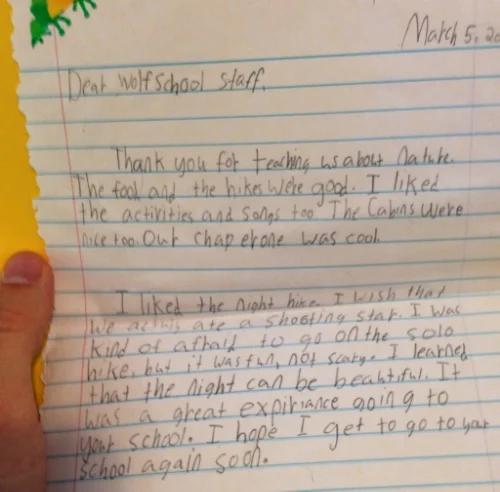 March 5, 20
Dear Wolf School Staff,
Thank you for teaching us about nature.
The food and the hikes were good. I liked
the activities and songs too The Cabins were
nice too. Our chaperone was cool.
I liked the night hike. I wish that
We ate a shooting star. I was
kind of afraid to go on the solo
hike, but it was fun, not scary. I learned
that the night can be beautiful. It
was a great expiriance going to
your school. I hope I get to go to your
school again soon.